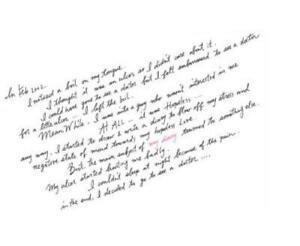 In Feb 2002.
I noticed a boil on my tongue
I thought it was an ulcer so I didn't care about it.
I could have gone to see a doctor but I felt embarrassed to see a doctor
for a little ulcer. I left the boil.
Mean While. I was into a guy who wasn't interested in me
AT ALL .. it was Hopeless...
any way. I started to draw & write a diary to blow off my stress and
negative state of mind towards my hopeless Love
But, the main subject of my diary turned to something else.
My ulcer started hurting me badly.
I couldn't sleep at night because of the pain.
in the end, I decided to go to see a doctor ....